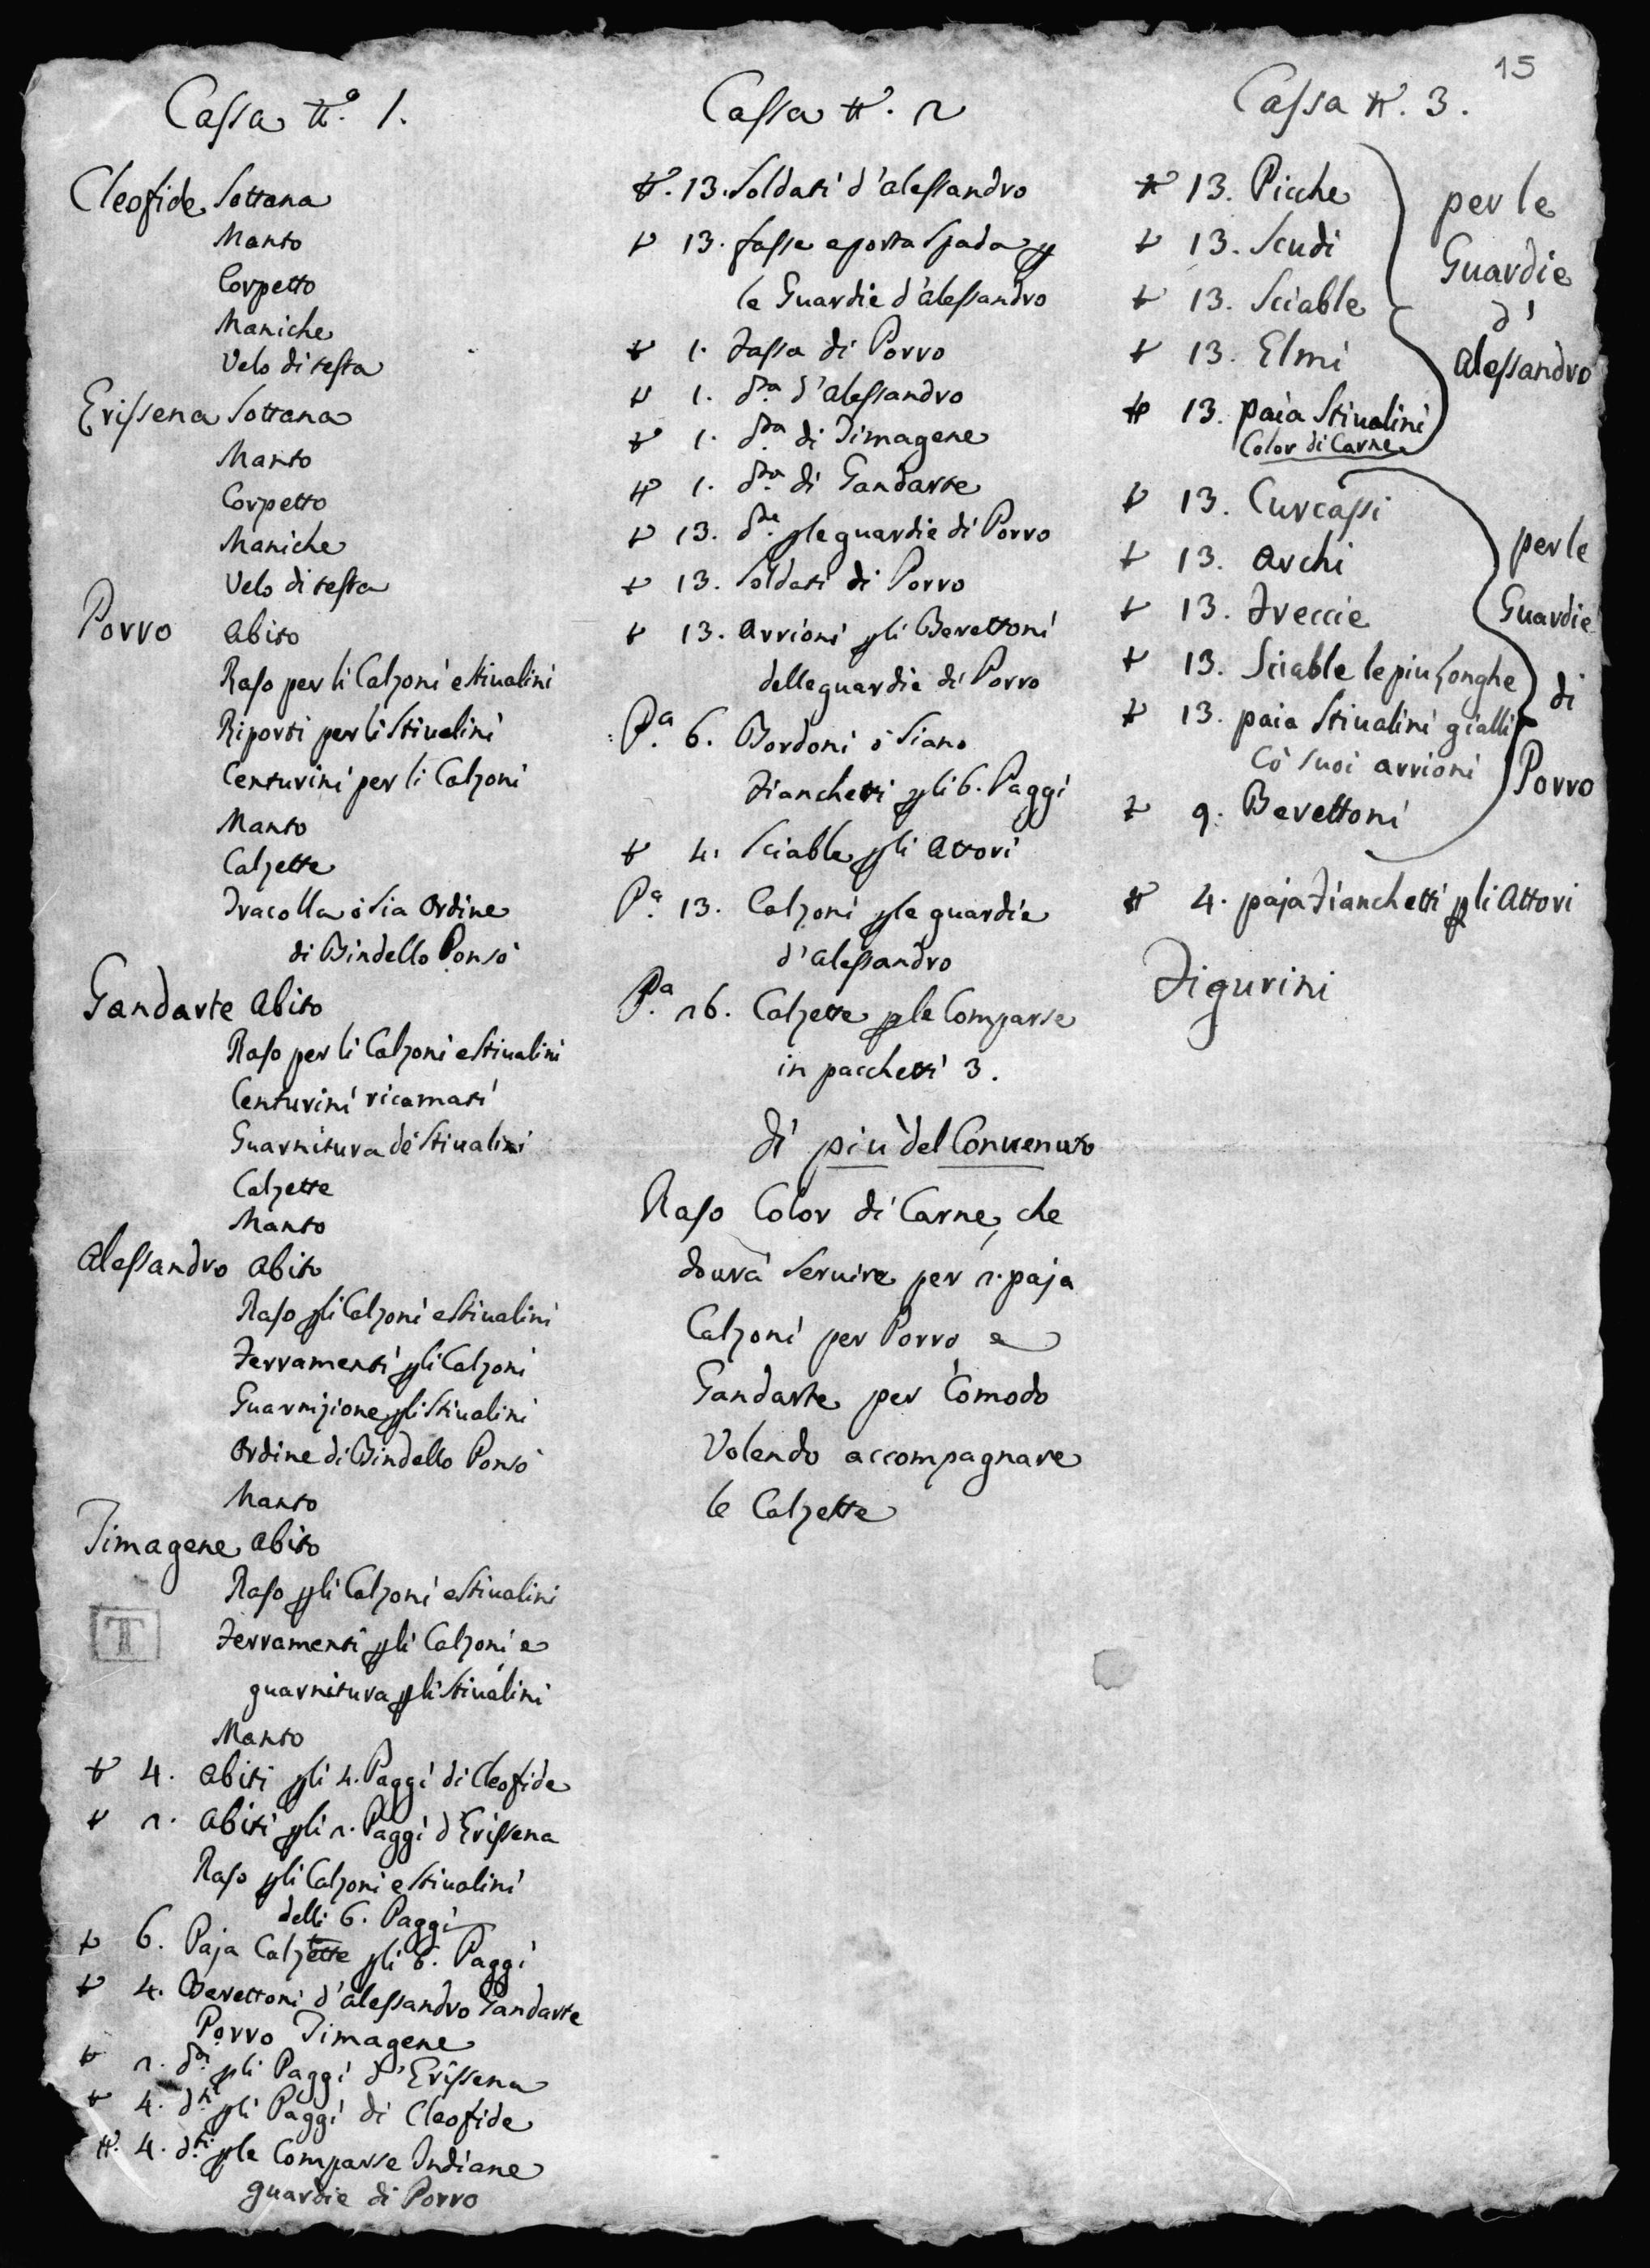 15
Cassa N.º 1.
Cleofide Sottana
Manto
Corpetto
Maniche
Velo di testa
Erissena Sottana
Manto
Corpetto
Maniche
Velo di testa
Porro Abito
Raso per li Calzoni e Stivalini
Riporti per li Stivalini
Centurini per li Calzoni
Manto
Calzette
Tracolla ó sia Ordine
di Bindello Ponsò
Gandarte Abito
Raso per li Calzoni e Stivalini
Centurini ricamati
Guarnitura de Stivalini
Calzette
Manto
Alessandro Abito
Raso p li Calzoni e Stivalini
Ferramenti p li Calzoni
Guarnizione p li Stivalini
Ordine di Bindello Ponsò
Manto
Timagene Abito
Raso p li Calzoni e Stivalini
T
Ferramenti p li Calzoni e
guarnitura p li Stivalini
Manto
N 4. Abiti p li 4. Paggi di Cleofide
N 2. Abiti p li 2. Paggi d'Erissena
Raso p li Calzoni e Stivalini
delli 6. Paggi
N 6. Paja Calzette p li 6. Paggi
N 4. Berettoni d'Alessandro Gandarte
Porro Timagene
N 2. dti p li Paggi d'Erissena
N 4. dti p li Paggi di Cleofide
N. 4. dti p le Comparse Indiane
guardie di Porro
Cassa N. 2
N. 13. Soldati d'Alessandro
N 13. fasse a porta Spada p
le Guardie d'Alessandro
N 1. Fassa di Porro
N 1. dta d'Alessandro
N 1. dta di Timagene
N 1. dta di Gandarte
N 13. dte p le guardie di Porro
N 13. Soldati di Porro
N 13. Arrioni p li Berettoni
delle guardie di Porro
P.a 6. Bordoni ó Siano
Fianchetti p li 6. Paggi
N 4. Sciable p li Attori
P.a 13. Calzoni p le guardie
d'Alessandro
P.a 26. Calzette p le Comparse
in pacchetti 3.
di più del Convenuto
Raso Color di Carne, che
dovrà Servire per 2. paja
Calzoni per Porro e
Gandarte per Comodo
Volendo accompagnare
le Calzette
Cassa N. 3.
N 13. Picche
N 13. Scudi
N 13. Sciable
N 13. Elmi
N 13. paia Stivalini
Color di Carne
per le
Guardie
d'
Alessandro
N 13. Curcassi
N 13. Archi
N 13. Freccie
N 13. Sciable le piu longhe
N 13. paia Stivalini gialli
Cò Suoi arrioni
N 9. Berettoni
per le
Guardie
di
Porro
N 4. paja Fianchetti p li Attori
Figurini